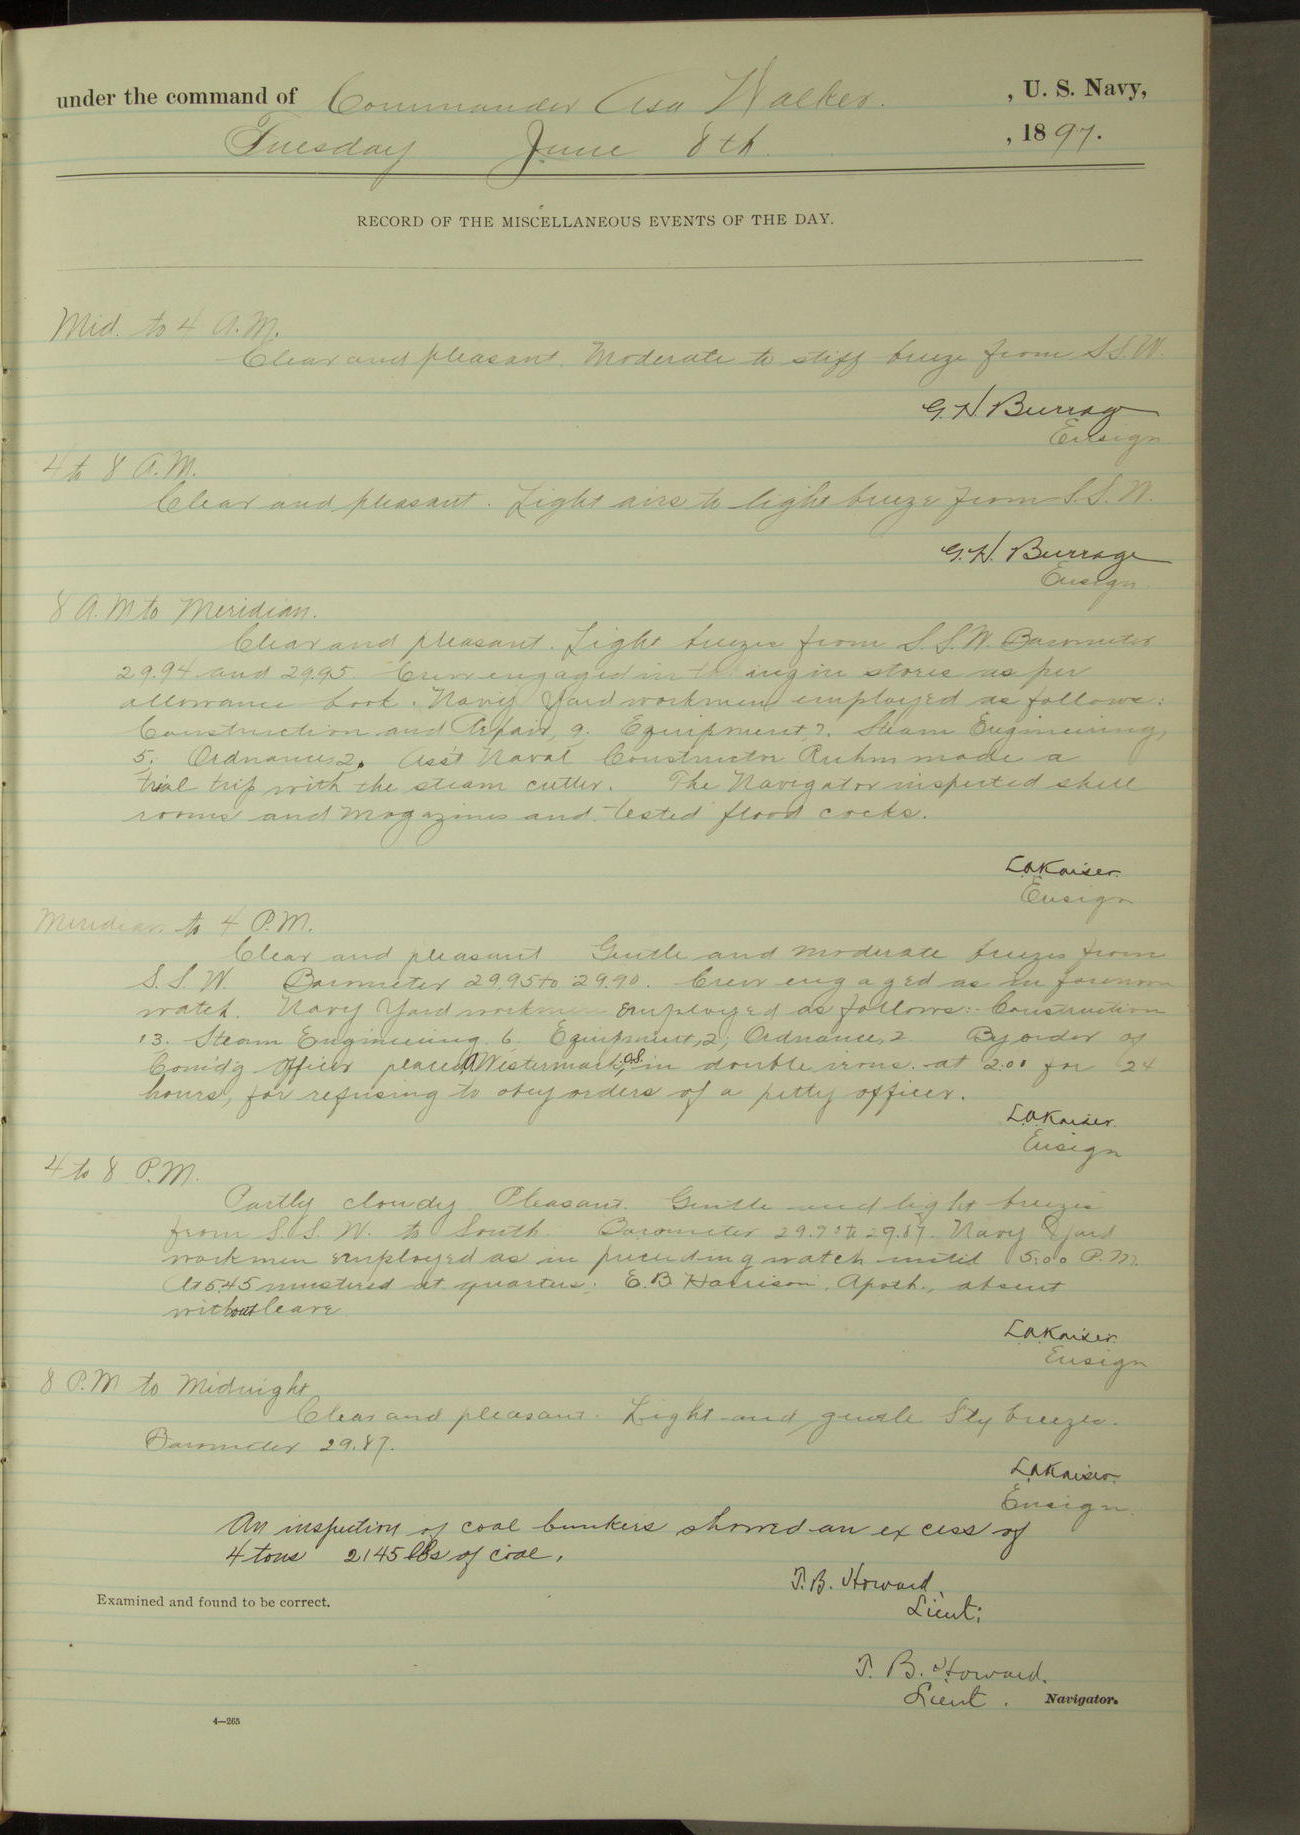 under the command of Commander Asa Walker. , U. S. Navy,
Tuesday June 8th. , 1897.
RECORD OF THE MISCELLANEOUS EVENTS OF THE DAY.
Mid. to 4 A.M.
Clear and pleasant. Moderate to stiff breeze from S.S.W.
G. H. Burrage
Ensign
4 to 8 A.M.
Clear and pleasant. Light airs to light breeze from S.S.W.
G. H. Burrage
Ensign
8 A.M to Meridian.
Clear and pleasant. Light breezes from S.S.W. Barometer
29.94 and 29.95. Crew engaged in stores as per
allowance book. Navy Yard workmen employed as follows:
Construction and Repair, 9. Equipment 7. Steam Engineering,
5; Ordnance, 2. Ass't Naval Constructor Ruhm made a
trial trip with the steam cutter. The Navigator inspected shell
rooms and magazines and tested flood cocks.
L.A. Kaiser.
Ensign
Meridian to 4 P.M.
Clear and pleasant Gentle and moderate breezes from
S.S.W. Barometer 29.95 to 29.90. Crew engaged as in forenoon
watch. Navy Yard workmen employed as follows:- Construction
13. Steam Engineering 6. Equipment, 2; Ordnance, 2 By order of
Com'd'g Officer placed A Westermark, in double irons. at 2.00 for 24
hours, for refusing to obey orders of a petty officer.
L.A. Kaiser.
Ensign
4 to 8 P.M.
Partly cloudy Pleasant. Gentle and light breezes
from S.S.W. to South. Barometer 29.90 to 29.87. Navy Yard
workmen employed as in preceding watch until 5:00 P.M.
At 5.45 mustered at quarters; E. B Harrison, Apoth., absent
without leave
L.A. Kaiser.
Ensign
8 P.M to Midnight
Clear and pleasant. Light and gentle S'ly breezes.
Barometer 29.87.
L.A. Kaiser.
Ensign.
An inspection of coal bunkers showed an excess of
4 tons 2145 lbs of coal.
T. B. Howard.
Lieut;
Examined and found to be correct.
T. B. Howard.
Lieut. Navigator.
4—265